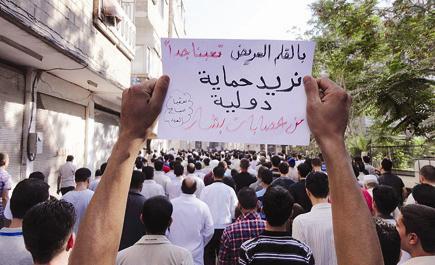 بالقلم العريض تعبنا جداً
نريد حماية
دولية
من عصابات بشار